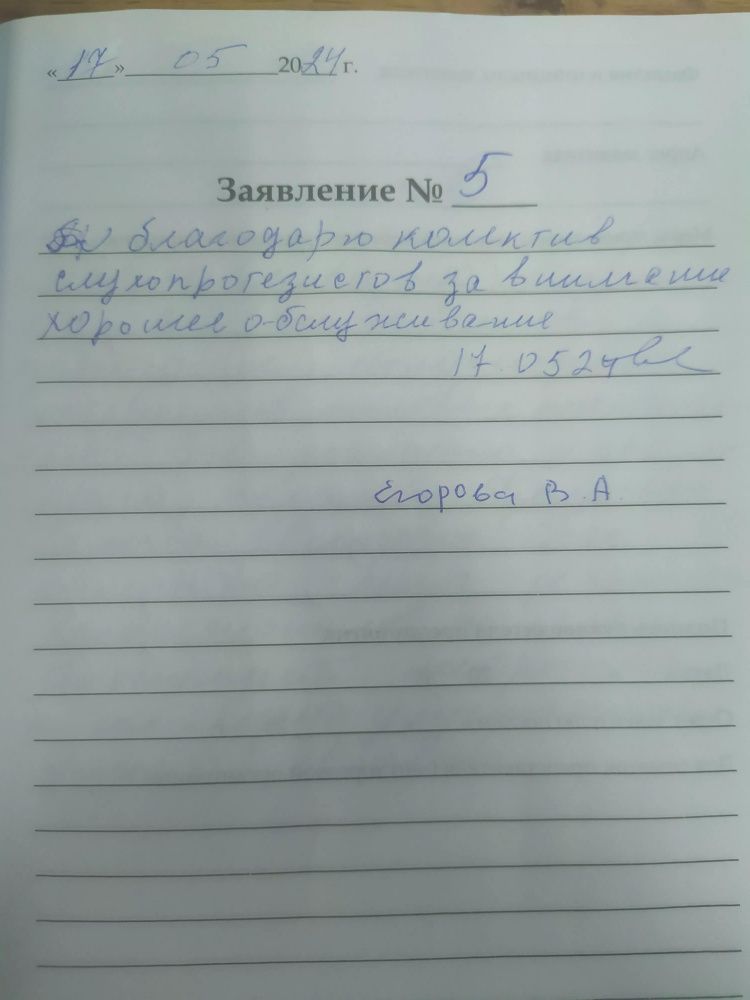 «17» 05 2024 г.
Заявление № 5
благодарю колектив
слухопротезистов за внимание
хорошее обслуживание
17.0524
Егорова В.А.